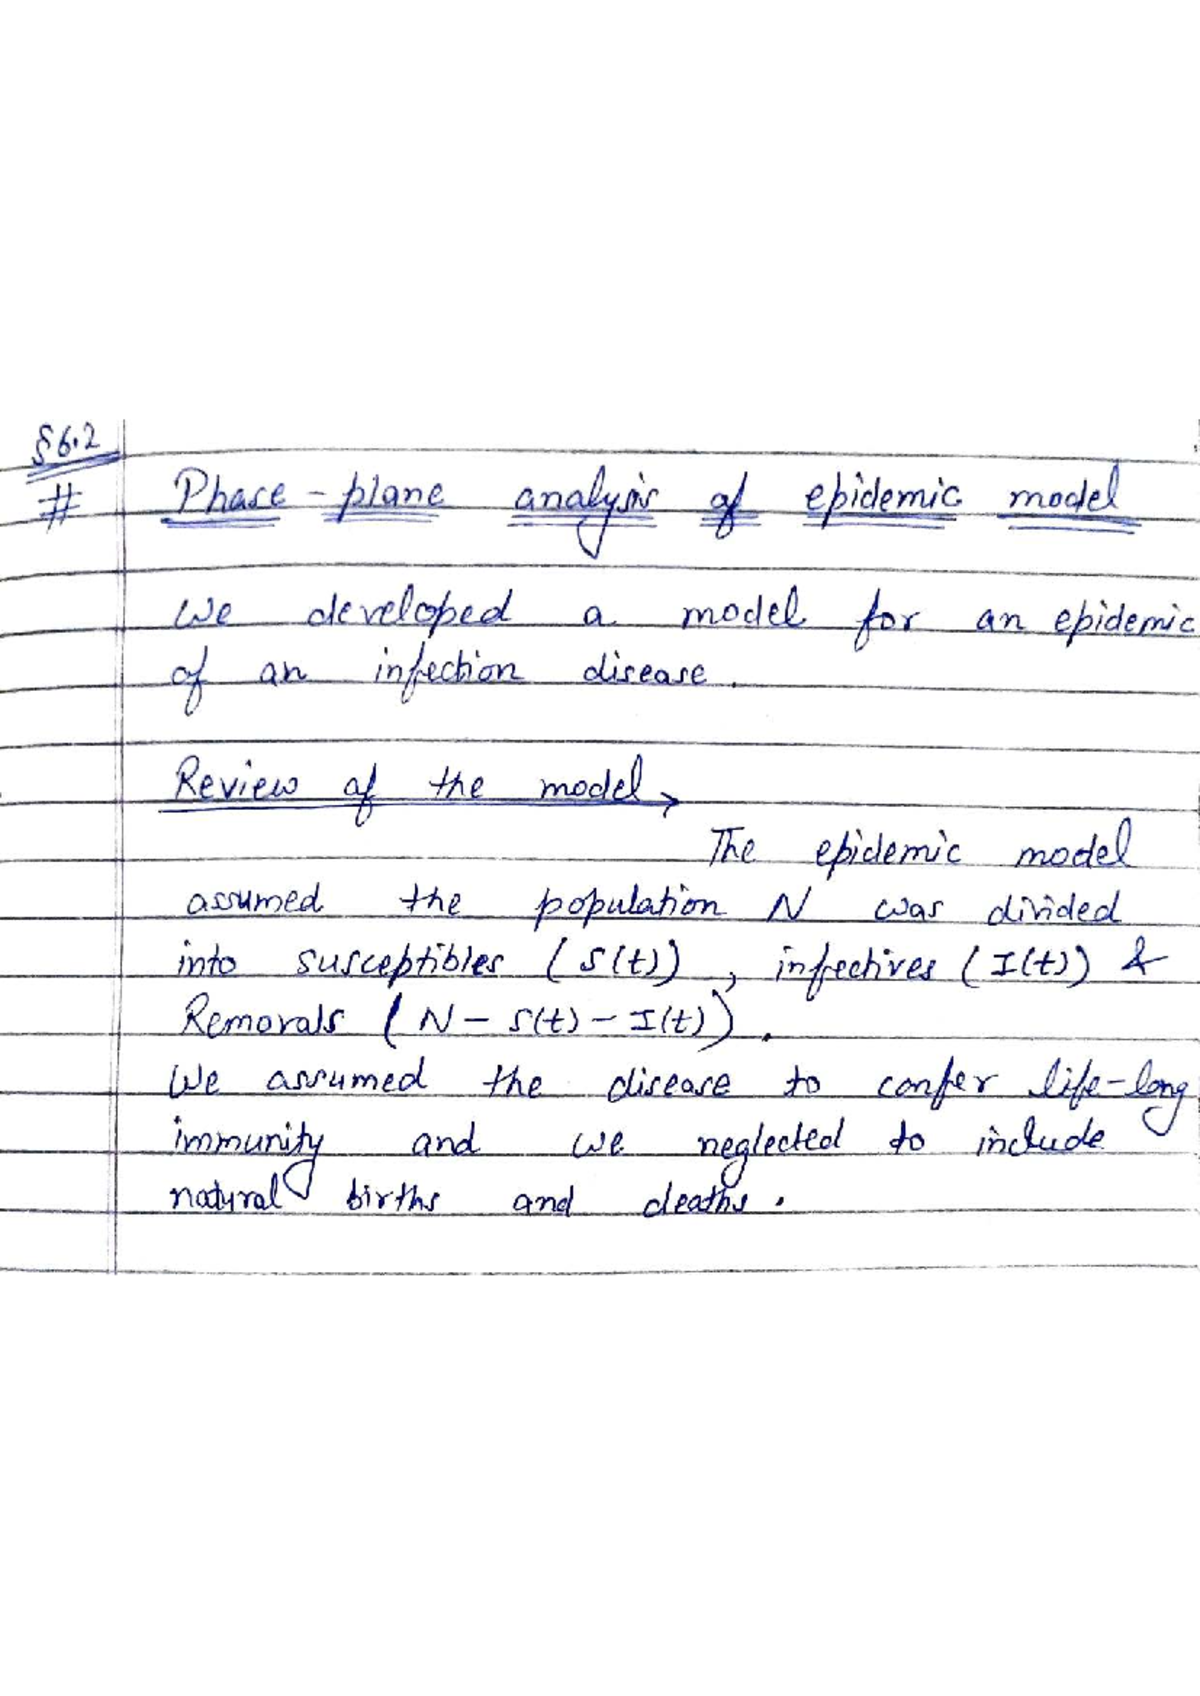 §6.2
# Phase-plane analysis of epidemic model
We developed a model for an epidemic
of an infection disease.
Review of the model →
The epidemic model
assumed the population N was divided
into susceptibles (S(t)), infectives (I(t)) &
Removals (N - S(t) - I(t)).
We assumed the disease to confer life-long
immunity and we neglected to include
natural births and deaths.